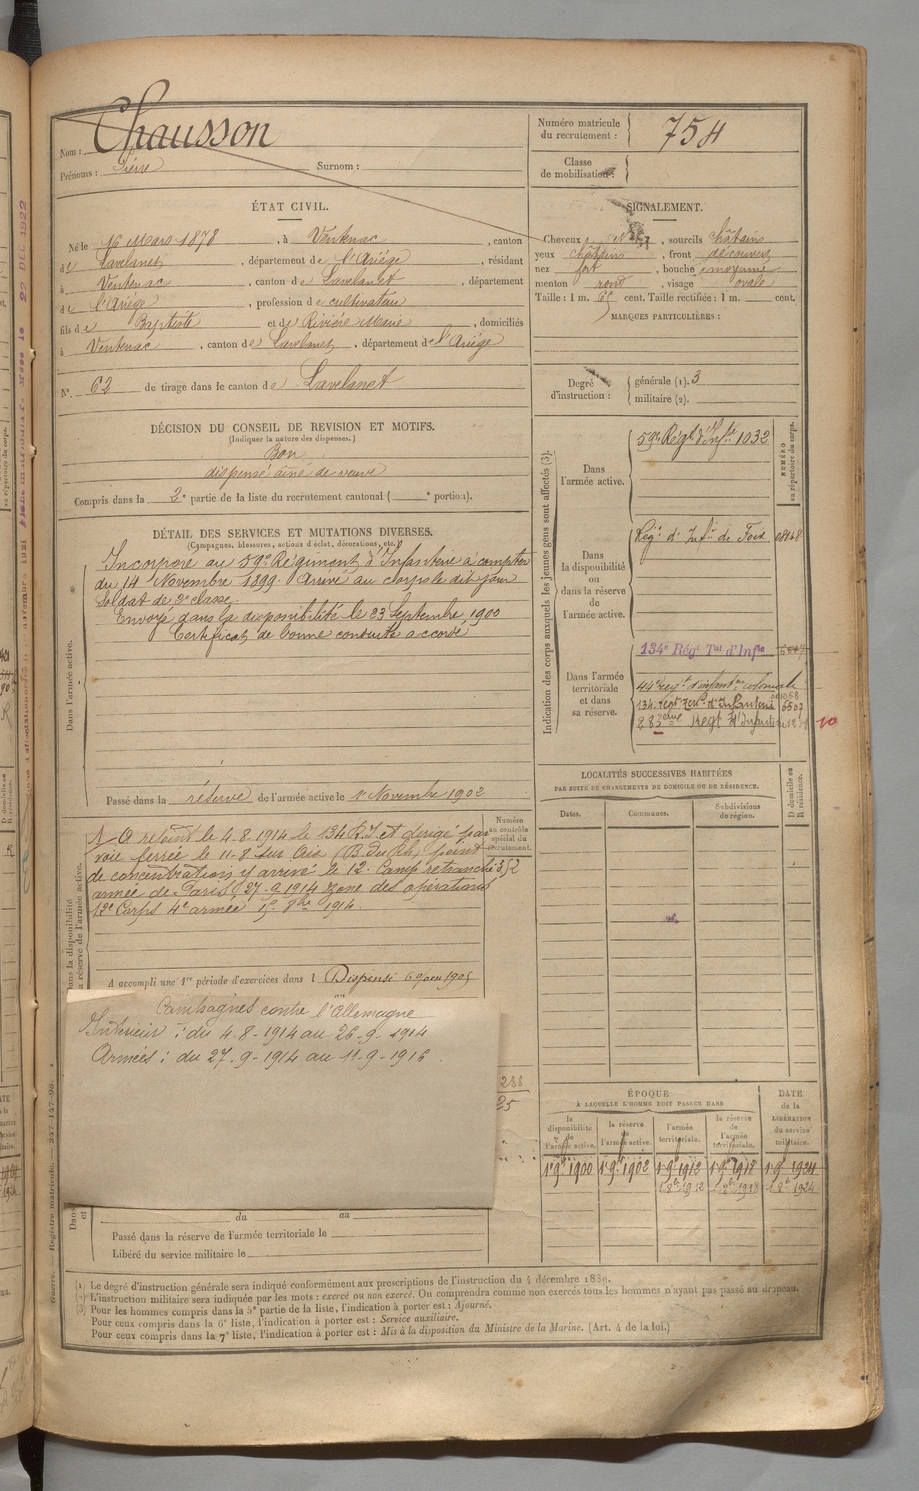 Chausson
Nom :
Prénoms : Pierre Surnom :
Numéro matricule du recrutement : 754
Classe de mobilisation :
ÉTAT CIVIL.
Né le 16 Mars 1878, à Ventenac, canton
de Lavelanet, département de l'Ariège, résidant
à Ventenac, canton de Lavelanet, département
de l'Ariège, profession de cultivateur
fils de Baptiste et de Rivière Marie, domiciliés
à Ventenac, canton de Lavelanet, département de l'Ariège
N° 62 de tirage dans le canton de Lavelanet
SIGNALEMENT.
Cheveux, sourcils châtains
yeux châtains, front découvert
nez fort, bouche moyenne
menton rond, visage ovale
Taille : 1 m. cent. Taille rectifiée : 1 m. cent.
MARQUES PARTICULIÈRES :
Degré d'instruction : générale (1). 3
militaire (2).
DÉCISION DU CONSEIL DE REVISION ET MOTIFS.
(Indiquer la nature des dispenses.)
Bon
dispensé aîné de veuve
Compris dans la 2e partie de la liste du recrutement cantonal ( e portion).
DÉTAIL DES SERVICES ET MUTATIONS DIVERSES.
(Campagnes, blessures, actions d'éclat, décorations, etc.)
Dans l'armée active.
Incorporé au 59e Régiment d'Infanterie à compter
du 14 Novembre 1899. Arrivé au corps le dit jour
Soldat de 2e classe.
Envoyé dans la disponibilité le 23 Septembre 1900
Certificat de bonne conduite accordé
Passé dans la réserve de l'armée active le 1 Novembre 1902
Indication des corps auxquels les jeunes gens sont affectés (3).
NUMÉRO au répertoire du corps.
Dans l'armée active.
59e Régt d'Infie 1032
Dans la disponibilité ou dans la réserve de l'armée active.
Régt d'Infie de Foix
Dans l'armée territoriale et dans sa réserve.
134e Régt Tal d'Infie
44e régt d'infantie coloniale
134e régt terr. d'Infanterie 6507
283ème Régt d'Infanterie
LOCALITÉS SUCCESSIVES HABITÉES
PAR SUITE DE CHANGEMENTS DE DOMICILE OU DE RÉSIDENCE.
Dates. Communes. Subdivisions de région. D domicile ou R résidence.
Numéro au contrôle spécial du recrutement.
352
A rejoint le 4-8-1914 le 134 R.I et dirigé par
voie ferrée le 11-8 sur Aix (B. du Rh) point
de concentration y arrivé le 12. Camp retranché
armée de Paris 27-9-1914 zone des opérations
12e Corps 4e armée
A accompli une 1re période d'exercices dans l Dispensé
Campagnes contre l'Allemagne
Intérieur : du 4-8-1914 au 26-9-1914
Armées : du 27-9-1914 au 11-9-1916.
288
25
du au
Passé dans la réserve de l'armée territoriale le
Libéré du service militaire le
ÉPOQUE
À LAQUELLE L'HOMME DOIT PASSER DANS
la disponibilité de l'armée active. la réserve de l'armée active. l'armée territoriale. la réserve de l'armée territoriale.
DATE de la LIBÉRATION du service militaire.
1 9bre 1900 1 9bre 1902 1 9bre 1912 1 9bre 1918 1 9bre 1924
1 8bre 1912 1 8bre 1918 1 8bre 1924
(1) Le degré d'instruction générale sera indiqué conformément aux prescriptions de l'instruction du 4 décembre 1889.
(2) L'instruction militaire sera indiquée par les mots : exercé ou non exercé. On comprendra comme non exercés tous les hommes n'ayant pas passé au drapeau.
(3) Pour les hommes compris dans la 5e partie de la liste, l'indication à porter est : Ajourné.
Pour ceux compris dans la 6e liste, l'indication à porter est : Service auxiliaire.
Pour ceux compris dans la 7e liste, l'indication à porter est : Mis à la disposition du Ministre de la Marine. (Art. 4 de la loi.)